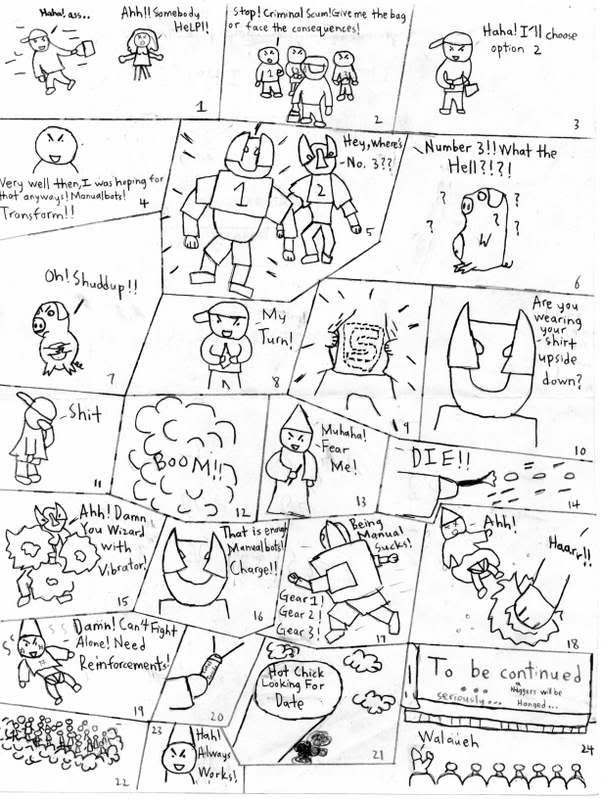 Haha! ass..
Ahh!! Somebody
HeLP!!
1
Stop! Criminal Scum! Give me the bag
or face the consequences!
1
3
2
Haha! I'll choose
option 2
3
Very well then, I was hoping for
that anyways! Manualbots!
Transform!!
4
Hey, Where's
No. 3??
1
2
5
Number 3!! What the
Hell?!?!
?
?
?
?
?
W
6
Oh! Shuddup!!
7
My
Turn!
8
S
9
Are you
wearing
your
shirt
upside
down?
10
Shit
11
BOOM!!
12
Muhaha!
Fear
Me!
13
DIE!!
14
Ahh! Damn
You Wizard
with
Vibrator!
15
That is enough
Manualbots!
Charge!!
16
Being
Manual
Sucks!
Gear 1!
Gear 2!
Gear 3!
17
Ahh!
Haarr!!
18
Damn! Can't Fight
Alone! Need
Reinforcements!
19
20
Hot Chick
Looking For
Date
21
22
23
Hah!
Always
Works!
To be continued
...
seriously...
Niggers will be
Hanged...
Walaueh
24